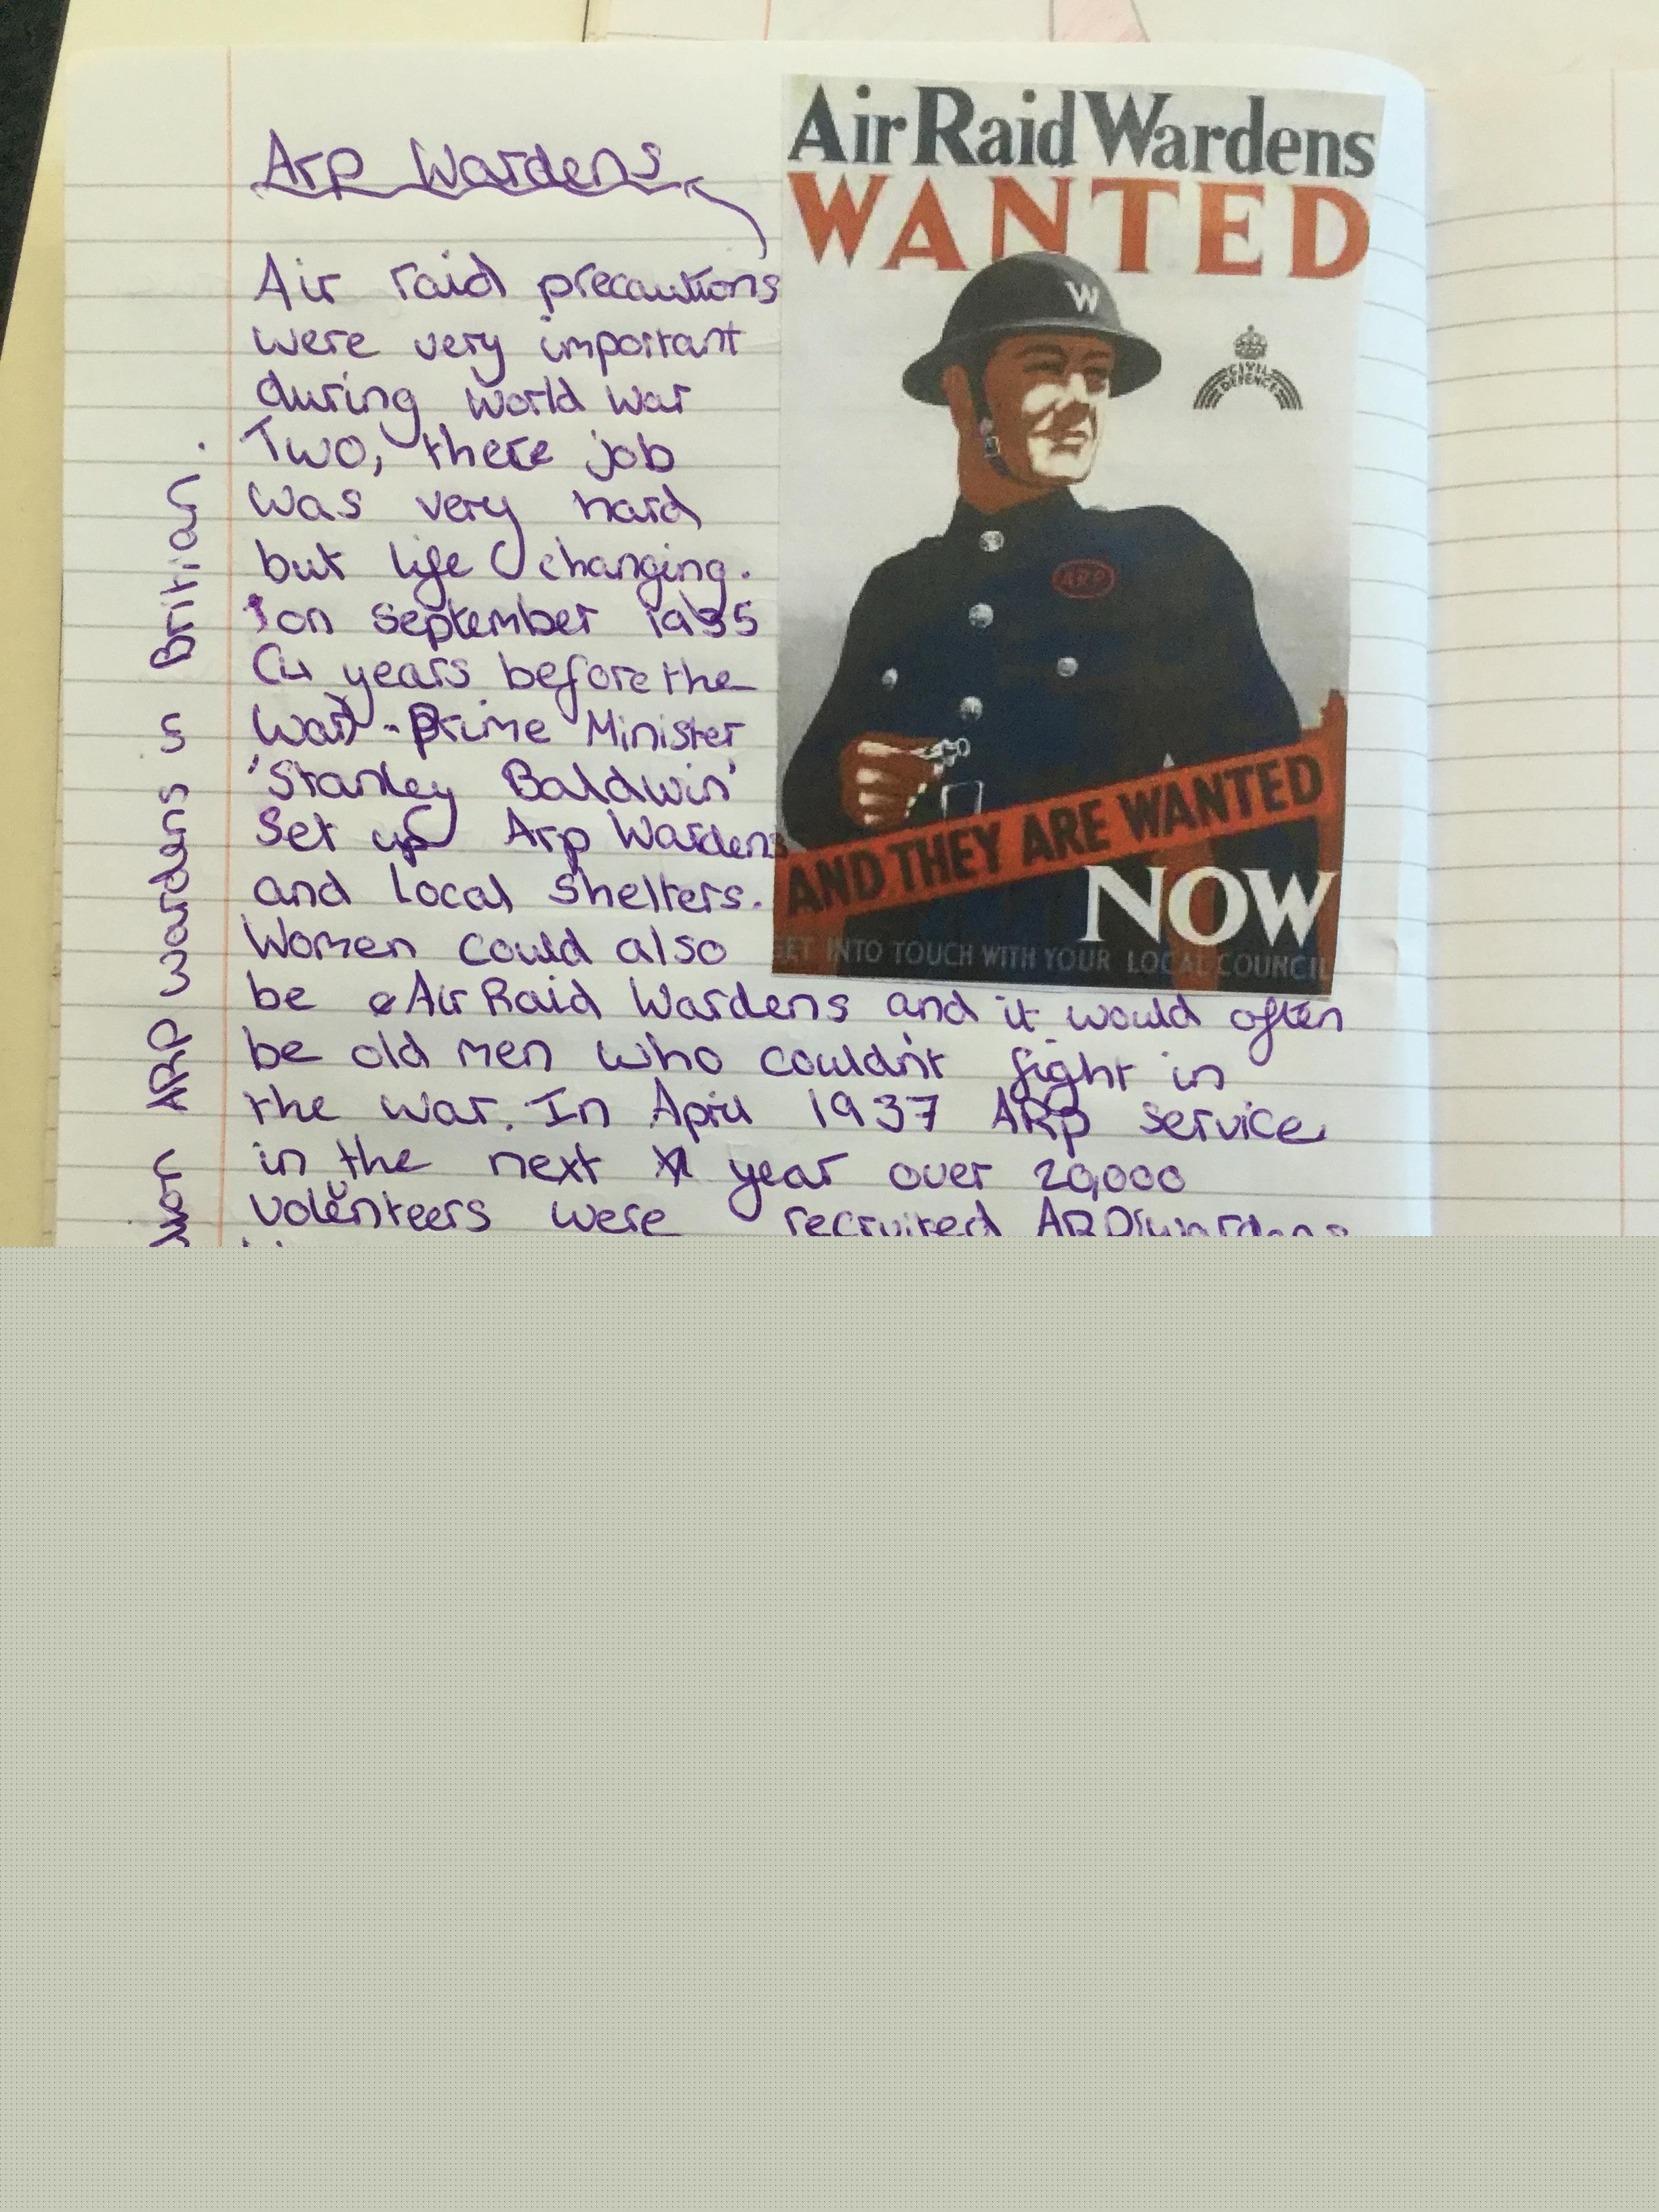 Arp Wardens
Air raid precautions
were very important
during world war
Two, there job
was very hard
but life changing.
on september 1935
(4 years before the
war) - Prime Minister
'Stanley Baldwin'
set up Arp Wardens
and local shelters.
Women could also
be Air Raid Wardens and it would often
be old men who couldn't fight in
the war. In April 1937 ARP service
in the next year over 20,000
volenteers were recruited ARP wardens
ARP wardens in Britian.
Air Raid Wardens
WANTED
W
CIVIL
DEFENCE
ARP
AND THEY ARE WANTED
NOW
GET INTO TOUCH WITH YOUR LOCAL COUNCIL